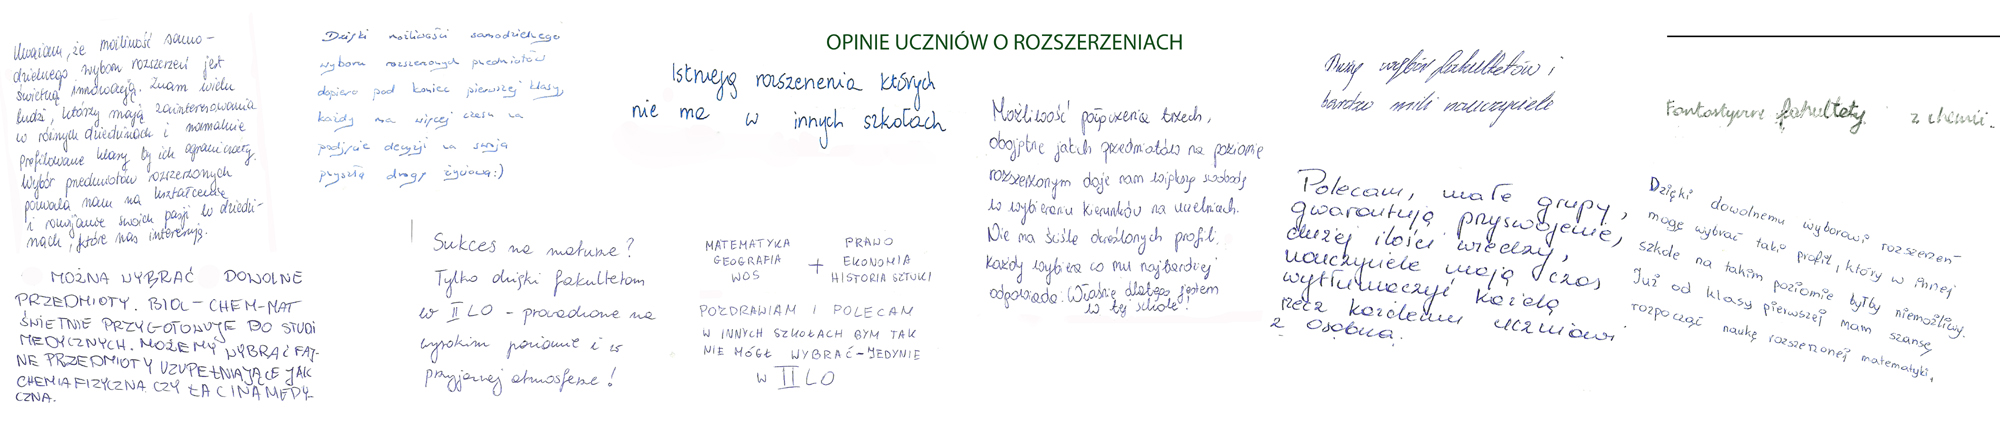 OPINIE UCZNIÓW O ROZSZERZENIACH
Uważam, że możliwość samo-
dzielnego wyboru rozszerzeń jest
świetną innowacją. Znam wielu
ludzi, którzy mają zainteresowania
w różnych dziedzinach i normalnie
profilowane klasy by ich ograniczały.
Wybór przedmiotów rozszerzonych
pozwala nam na kształcenie
i rozwijanie swoich pasji w dziedzi-
nach, które nas interesują.
MOŻNA WYBRAĆ DOWOLNE
PRZEDMIOTY. BIOL-CHEM-MAT
ŚWIETNIE PRZYGOTOWUJE DO STUDI
MEDYCZNYCH. MOŻEMY WYBRAĆ FAJ-
NE PRZEDMIOTY UZUPEŁNIAJĄCE JAK
CHEMIA FIZYCZNA CZY ŁACINA MEDY-
CZNA.
Dzięki możliwości samodzielnego
wyboru rozszerzonych przedmiotów
dopiero pod koniec pierwszej klasy,
każdy ma więcej czasu na
podjęcie decyzji na swoją
przyszłą drogę życiową:)
Sukces na maturze?
Tylko dzięki fakultetom
w II LO - prowadzone na
wysokim poziomie i w
przyjaznej atmosferze!
Istnieją rozszerzenia których
nie ma w innych szkołach
MATEMATYKA
GEOGRAFIA
WOS
+
PRAWO
EKONOMIA
HISTORIA SZTUKI
POZDRAWIAM I POLECAM
W INNYCH SZKOŁACH BYM TAK
NIE MÓGŁ WYBRAĆ-JEDYNIE
W II LO
Możliwość połączenia trzech,
obojętnie jakich przedmiotów na poziomie
rozszerzonym daje nam większą swobodę
w wybieraniu kierunków na uczelniach.
Nie ma ściśle określonych profili.
Każdy wybiera co mu najbardziej
odpowiada. Właśnie dlatego jestem
w tej szkole!
Duży wybór fakultetów i
bardzo mili nauczyciele
Polecam, małe grupy,
gwarantują przyswojenie,
dużej ilości wiedzy,
nauczyciele mają czas
wytłumaczyć każdą
rzecz każdemu uczniowi
z osobna.
Fantastyczne fakultety z chemii.
Dzięki dowolnemu wyborowi rozszerzeń
mogę wybrać taki profil, który w innej
szkole na takim poziomie byłby niemożliwy.
Już od klasy pierwszej mam szansę
rozpocząć naukę rozszerzonej matematyki.